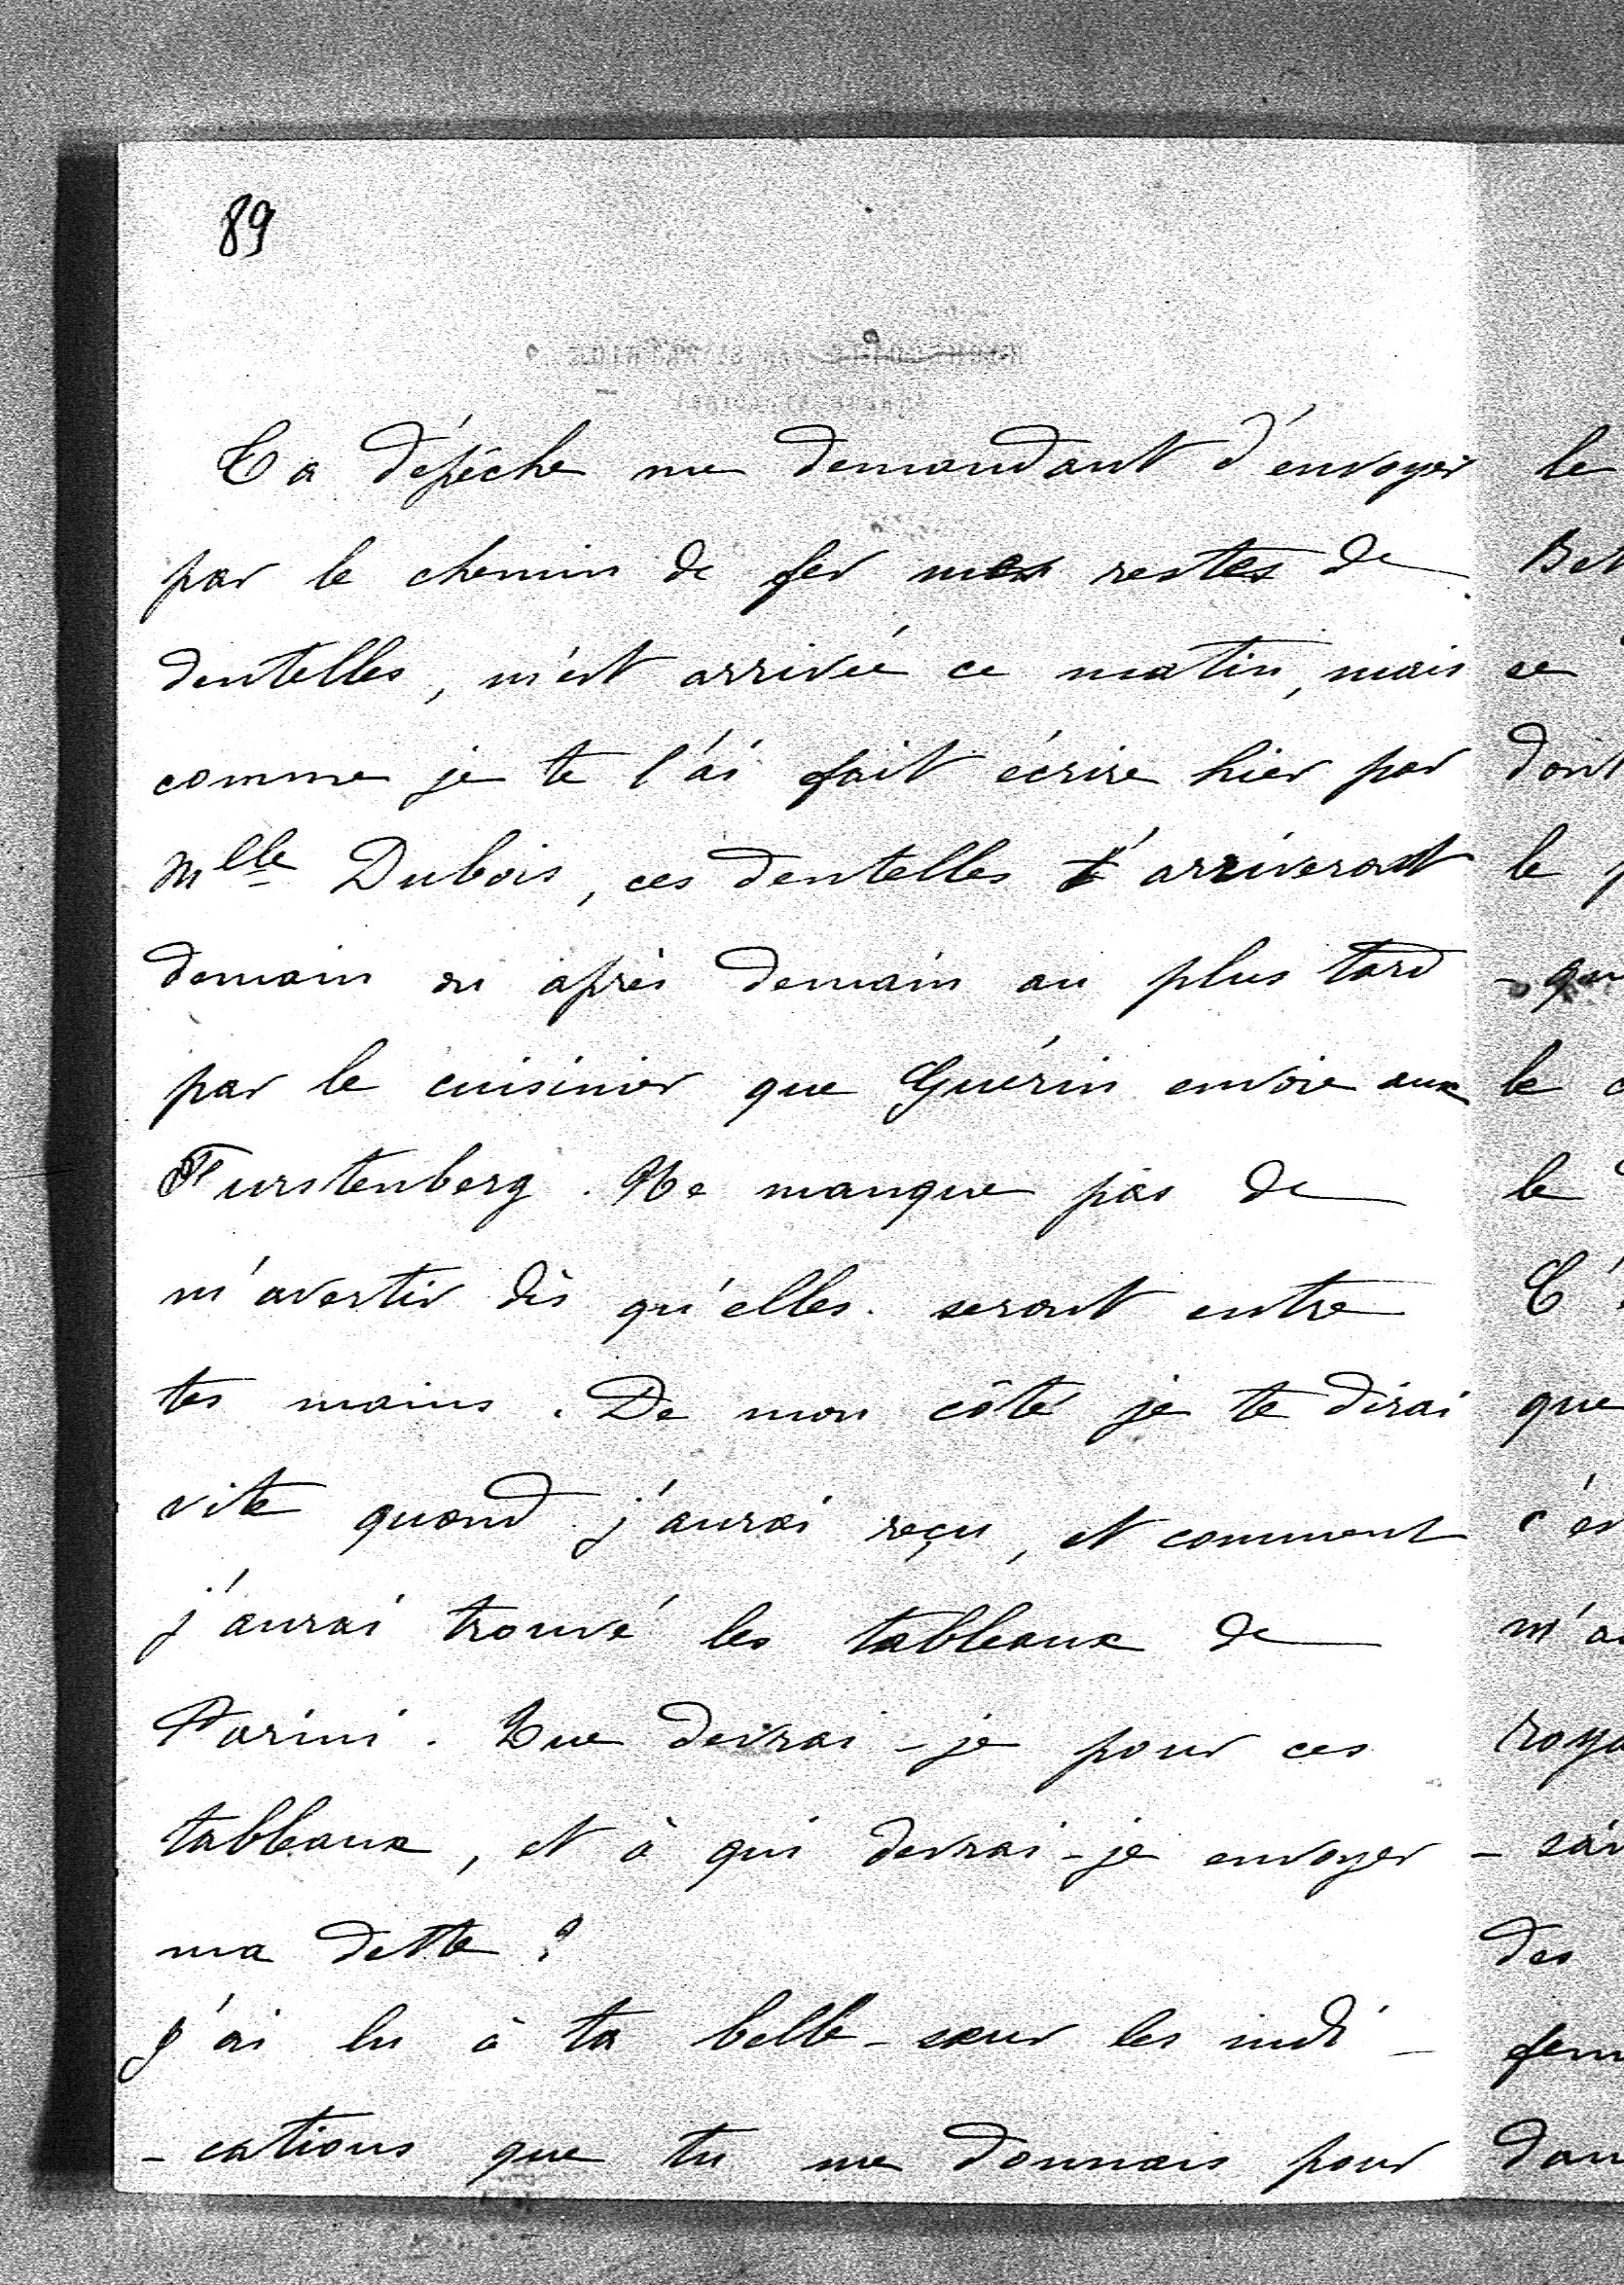 89
Ta dépêche me demandant d'envoyer
par le chemin de fer mes restes de
dentelles, m'est arrivée ce matin, mais
comme je te l'ai fait écrire hier par
Mlle Dubois, ces dentelles t'arriveront
demain ou après demain au plus tard
par le cuisinier que Guérin envoie aux
Furstenberg. Ne manque pas de
m'avertir dès qu'elles seront entre
tes mains. De mon côté je te dirai
vite quand j'aurai reçu, et comment
j'aurai trouvé les tableaux de
Parini. Que devrai-je pour ces
tableaux, et à qui devrai-je envoyer
ma dette ?
J'ai lu à ta belle-sœur les indi-
-cations que tu me donnais pour
le
ce
le
le
le
que
des